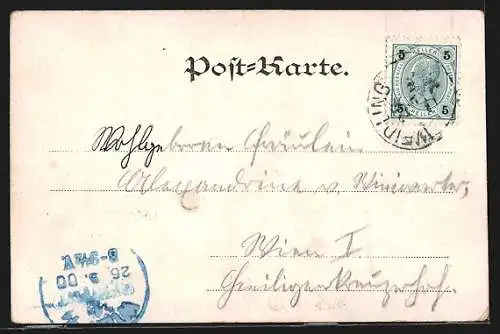 Post=Karte.
5 5
HELLER
5 5
WEIDLING
Wohlgeboren Fräulein
Alexandrine v. Winiwarter,
Wien I.
Heiligenkreuzerhof.
26. 9. 00
8-9½V